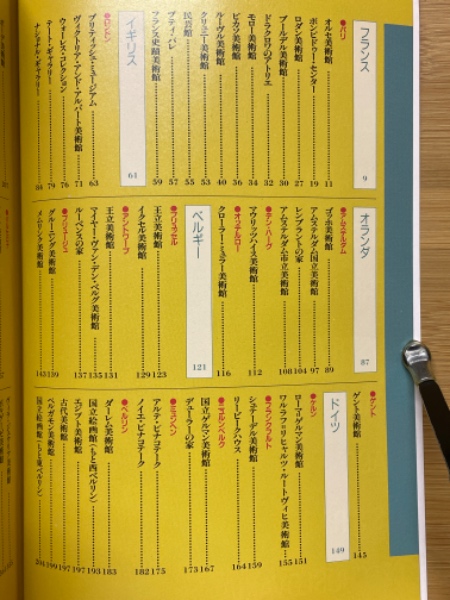 フランス 9
●パリ
オルセ美術館 11
ポンピドゥー・センター 19
ロダン美術館 27
ブールデル美術館 30
ドラクロワのアトリエ 32
モロー美術館 34
ピカソ美術館 36
ルーヴル美術館 40
クリュニー美術館 53
民芸館 55
プティパレ 57
フランス史蹟美術館 59
イギリス 61
●ロンドン
ブリティッシュ・ミュージアム 63
ヴィクトリア・アンド・アルバート美術館 71
ウォーレス・コレクション 76
テート・ギャラリー 79
ナショナル・ギャラリー 84
オランダ 87
●アムステルダム
ゴッホ美術館 89
アムステルダム国立美術館 97
レンブラントの家 104
アムステルダム市立美術館 108
●デン・ハーグ
マウリッツハイス美術館 112
●オッテルロー
クローラー・ミュラー美術館 116
ベルギー 121
●ブリュッセル
王立美術館 123
イクセル美術館 129
●アントワープ
王立美術館 131
マイヤー・ヴァン・デン・ベルグ美術館 135
ルーベンスの家 137
●ブリュージュ
グルーニング美術館 139
メムリンク美術館 143
●ゲント
ゲント美術館 145
ドイツ 149
●ケルン
ローマ・ゲルマン美術館 151
ワルラフ=リヒャルツ・ルートヴィヒ美術館 155
●フランクフルト
シュテーデル美術館 159
リービークハウス 164
●ニュルンベルク
国立ゲルマン美術館 167
デューラーの家 173
●ミュンヘン
アルテ・ピナコテーク 175
ノイエ・ピナコテーク 182
●ベルリン
ダーレム美術館 183
国立絵画館〈もと西ベルリン〉 193
エジプト美術館 197
古代美術館 197
ベルガモン美術館 199
国立絵画館〈もと東ベルリン〉 204